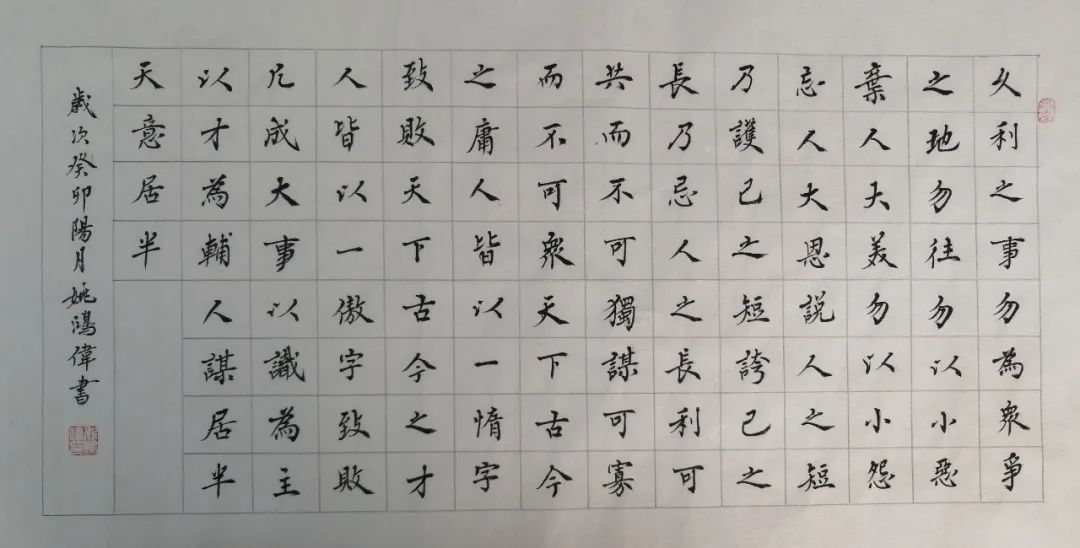 久利之事勿為衆爭
之地勿往勿以小惡
棄人大美勿以小怨
忘人大恩説人之短
乃護己之短誇己之
長乃忌人之長利可
共而不可獨謀可寡
而不可衆天下古今
之庸人皆以一惰字
致敗天下古今之才
人皆以一傲字致敗
凡成大事以識為主
以才為輔人謀居半
天意居半
歲次癸卯陽月姚鴻偉書